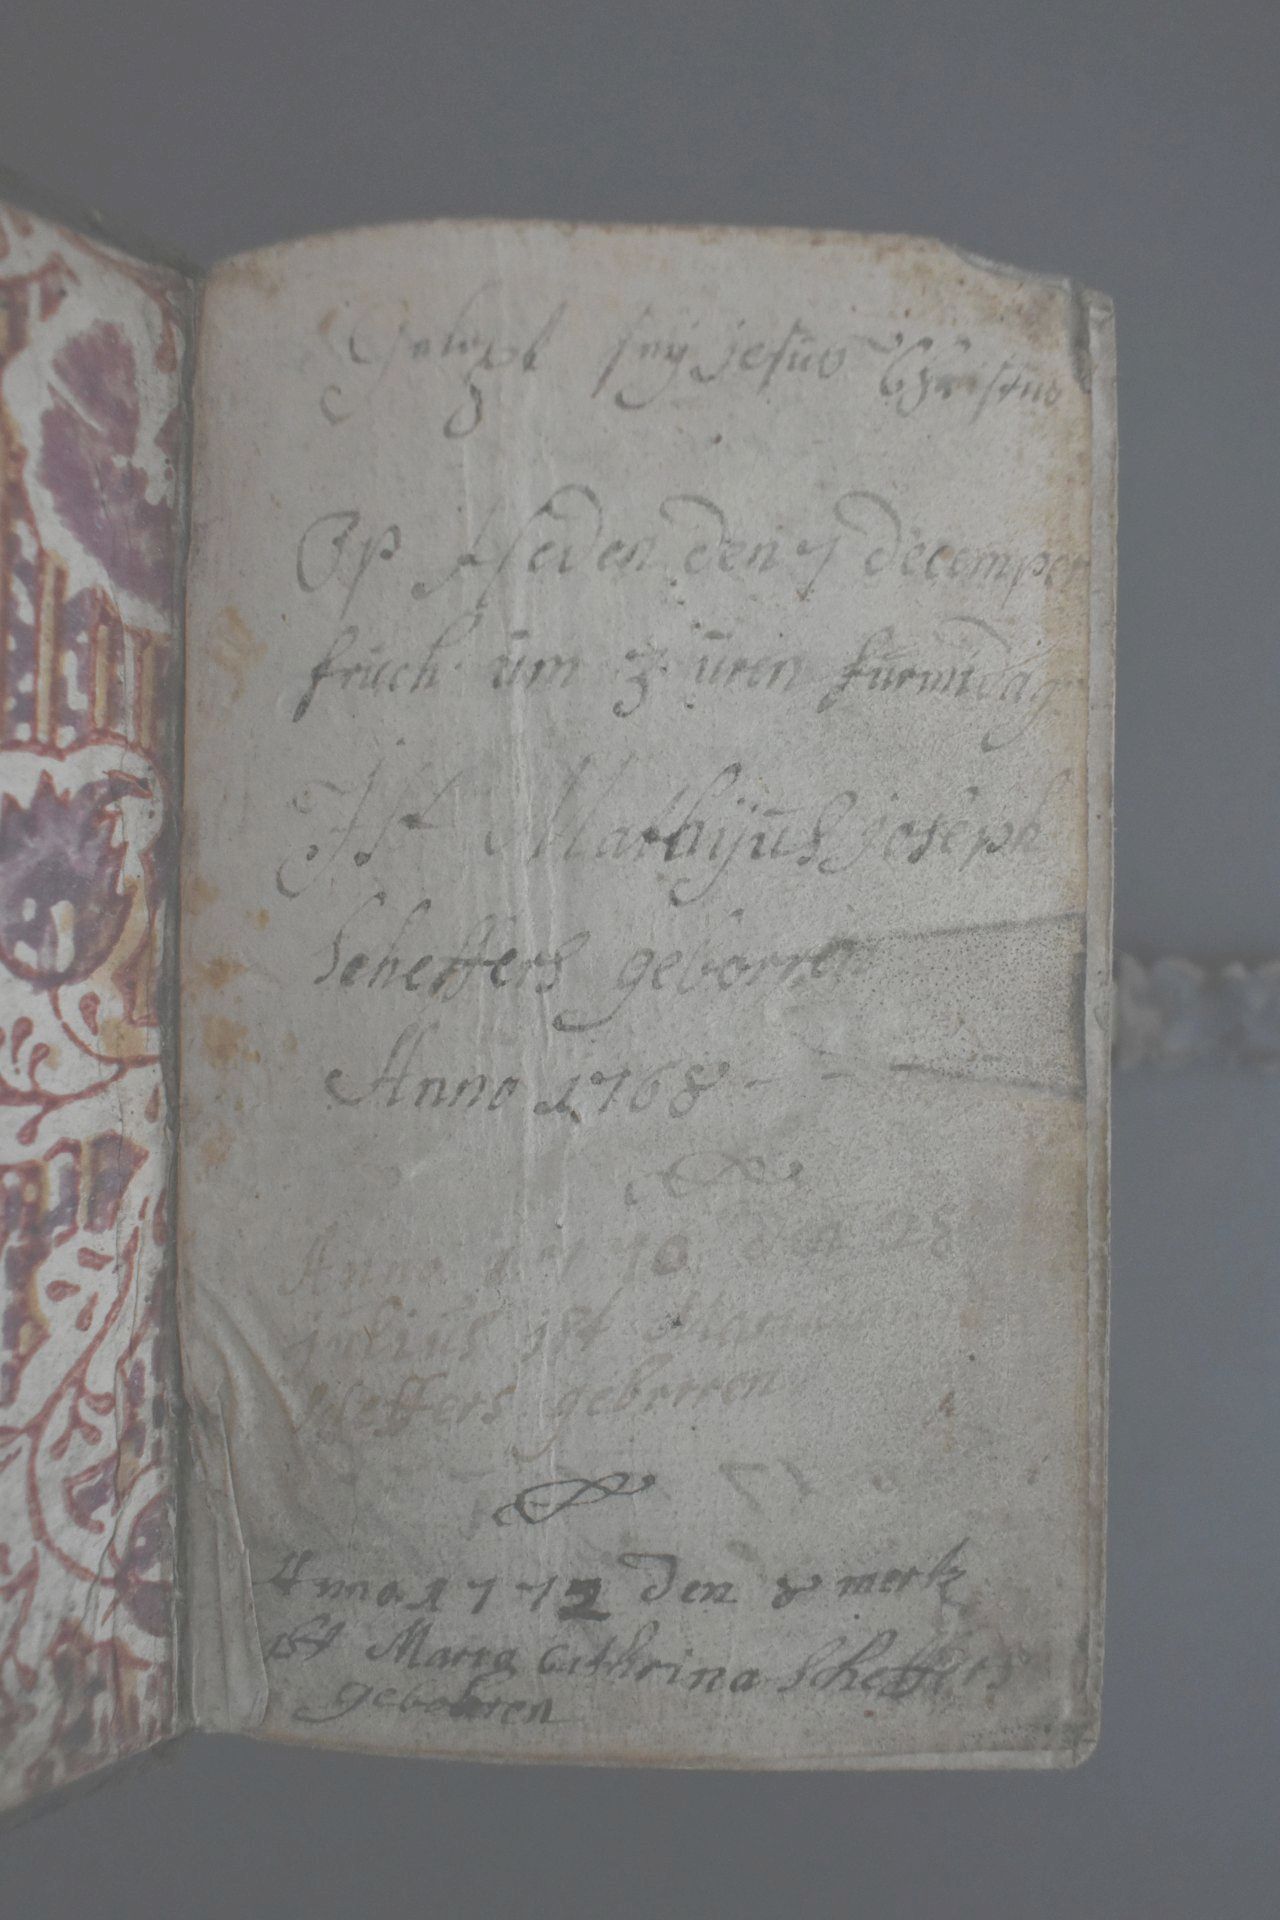 Gelopt seÿ jesus Christus
Op heden den 7 decemper
fruch um 3 uren furmidag
Ist Mathijus joseph
scheffers geborren
Anno 1768 - -
Anno 1770 den 28
julius ist
scheffers geborren
Anno 1772 den 8 mertz
ist Maria Cathrina scheffers
gebohren